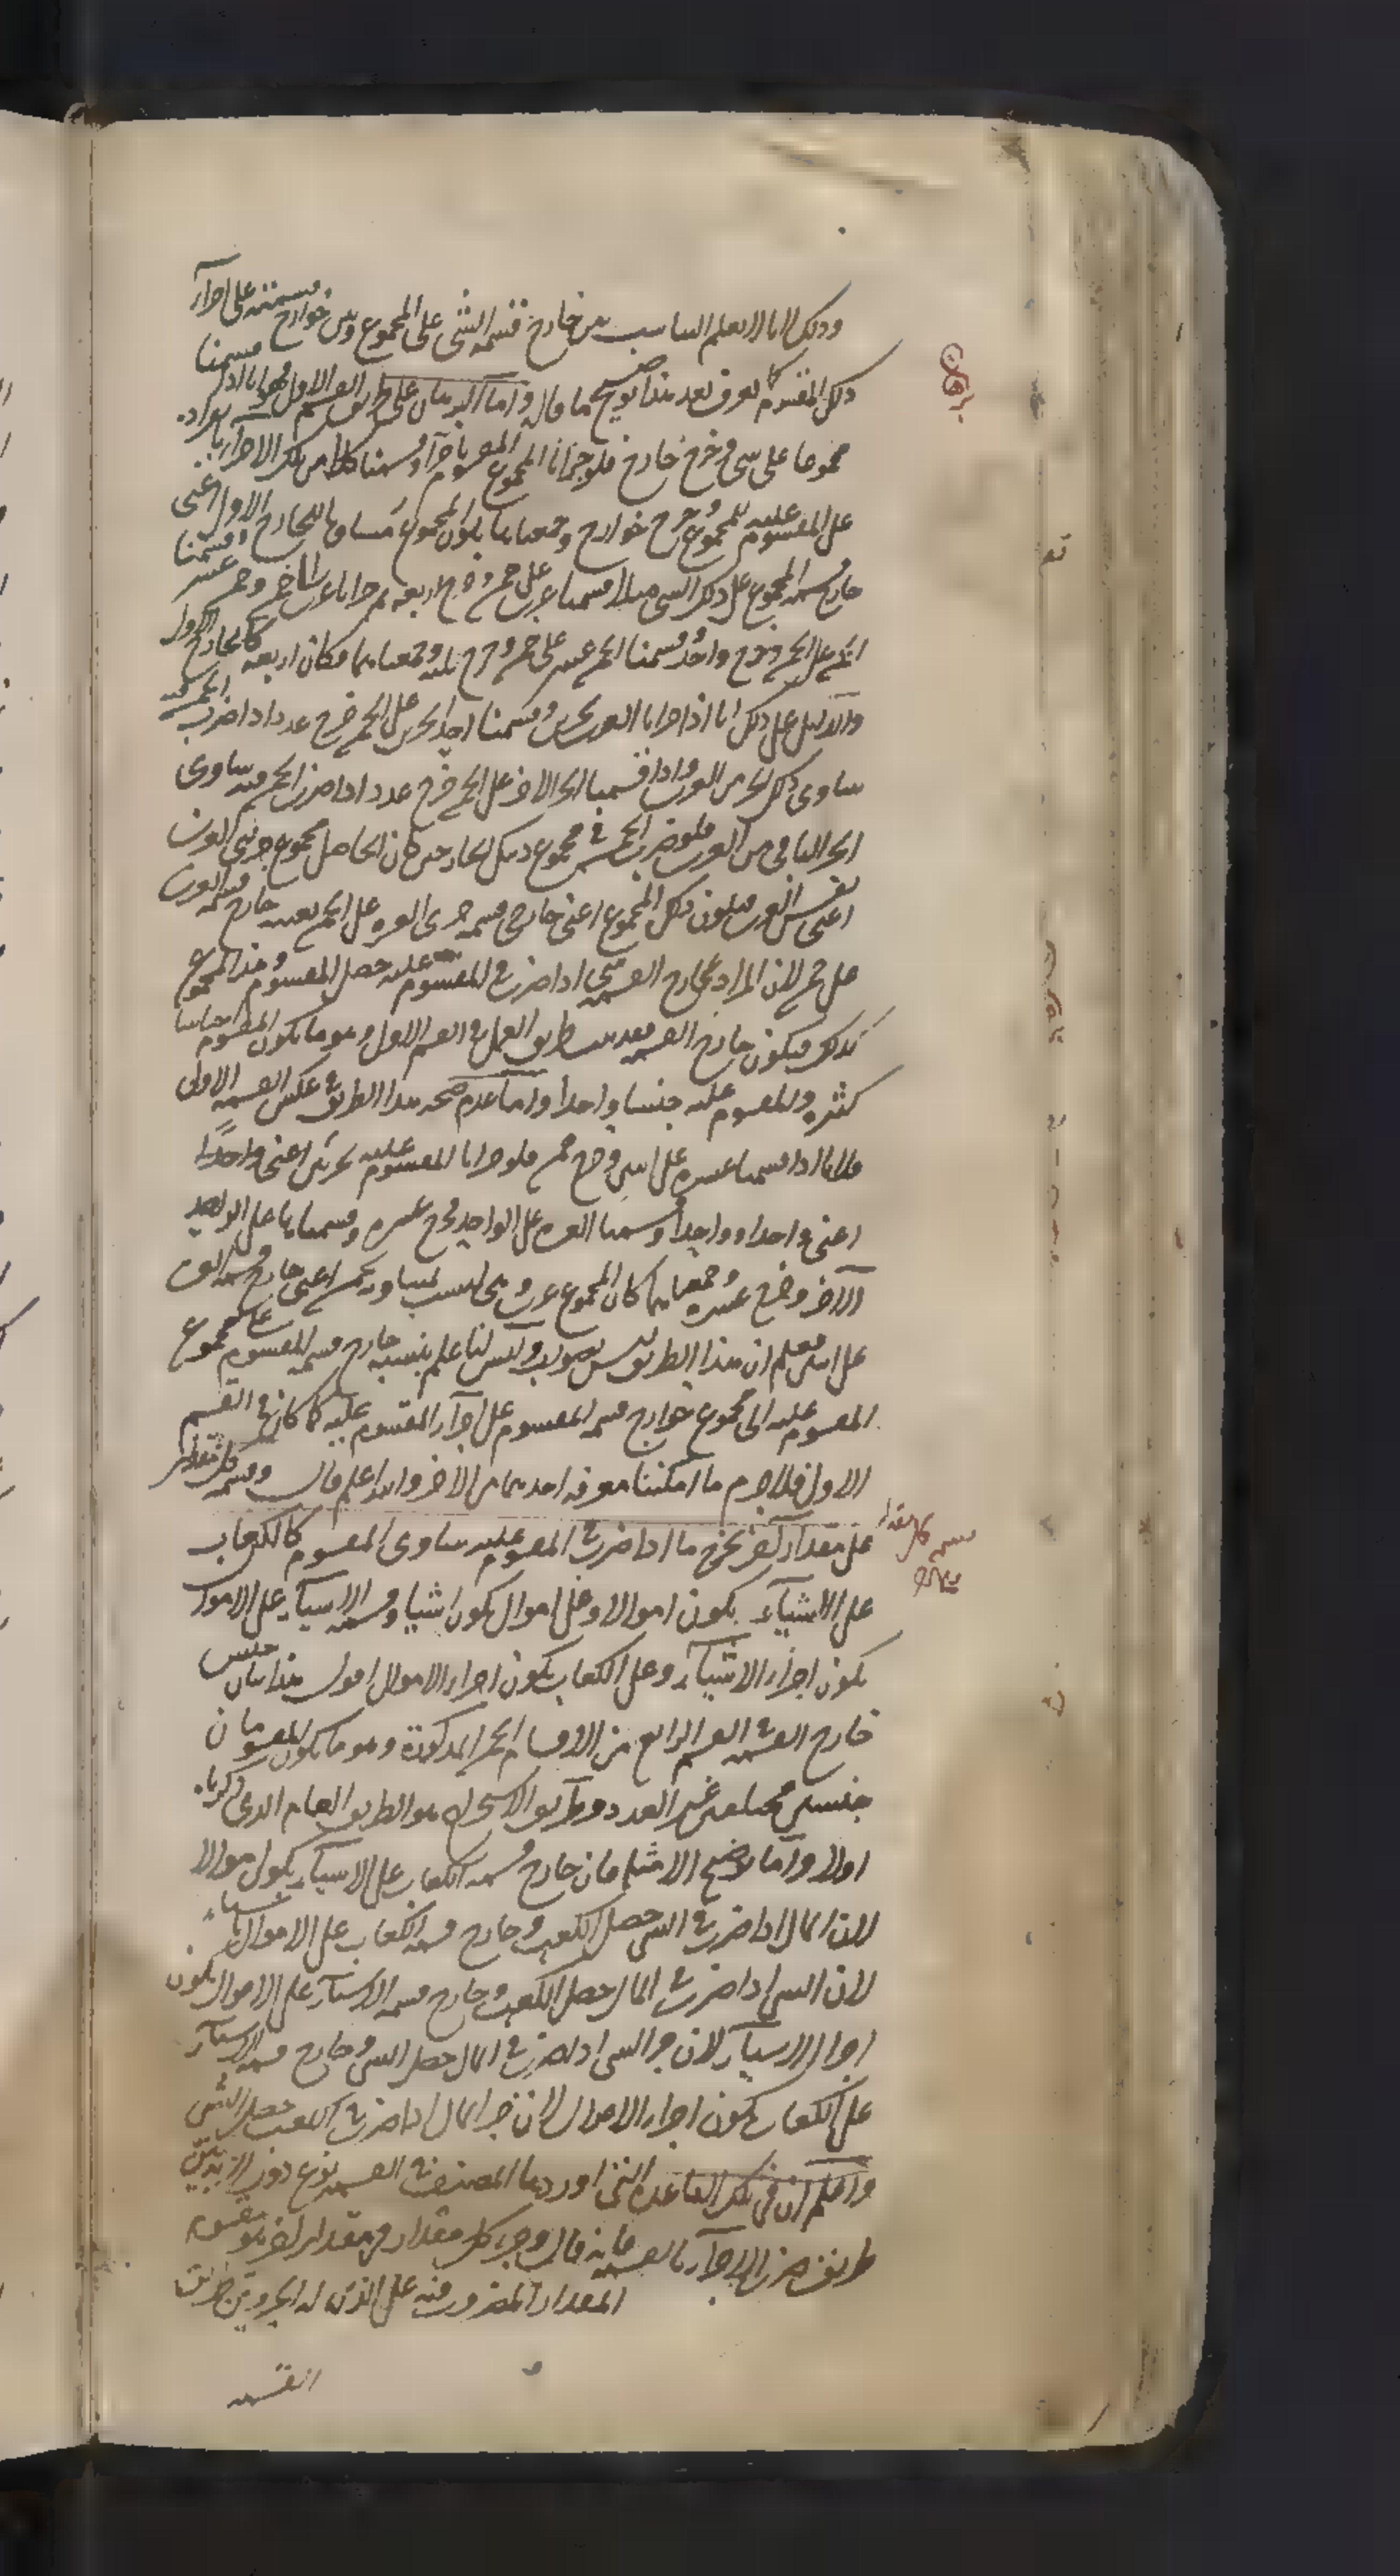 وذلك لانا لا نعلم التناسب بين خارج قسمة الشى على المجموع وبين خوارج قسمته على اجزآء
ذلك المقسوم كما يعرف بعد هذا توضيح ما قال واما البرهان على طريق القسم الاول فهو انا اذا قسمنا
مجموعا على شى وخرج خارج فلو جزانا المجموع المقسوم باجزآء وقسمنا كلا من تلك الاجزاء بانفراده
على المقسوم عليه للمجموع وخرج خوارج وجمعناها يكون المجموع مساويا للخارج الاول اعنى
خارج قسمة المجموع على ذلك الشى مثلا اذا قسمنا عشرين على خمسة وخرج اربعة ثم جزانا عشرين الى خمسة وخمسة عشر وقسمنا
الخمسة على الخمسة وخرج واحد وقسمنا الخمسة عشر على خمسة وخرج ثلثة وجمعناهما فكان اربعة كالخارج الاول
والدليل على ذلك انا اذا جزانا العشرين بجزئين وقسمنا احد الجزئين على الخمسة خرج عدد اذا ضرب الخمسة فيه
ساوى ذلك الجزء من العشرين واذا قسمنا الجزء الاخر على الخمسة خرج عدد اذا ضرب الخمسة فيه ساوى
الجزء الباقى من العشرين فلو ضرب الخمسة فى مجموع ذينك الخارجين كان الحاصل مجموع جزئى العشرين
اعنى نفس العشرين فيكون ذلك المجموع اعنى خارجى قسمة جزئى العشرين على الخمسة بعينه خارج قسمة العشرين
على خمسة لان المراد بخارج القسمة شى اذا ضرب فى المقسوم عليه حصل المقسوم وهذا المجموع
كذلك فيكون خارج القسمة فقد ثبت طريق العمل فى القسم الاول وهو ما يكون المقسوم اجناسا
كثيرة والمقسوم عليه جنسا واحدا واما عدم صحة هذا الطريق فى عكس القسمة الاولى
فلانا اذا قسمنا عشرة على اثنين وخرج خمسة فلو جزانا المقسوم عليه بجزئين اعنى واحدًا
اعنى واحدا وواحدا وقسمنا العشرة على الواحد فخرج عشرة وقسمناها على الواحد
الاخر وخرج عشرة وجمعناهما كان المجموع عشرين وهى ليست تساوى خمسة اعنى خارج قسمة العشرة
على اثنين فعلم ان هذا الطريق ليس بصواب وليس لنا علم بنسبة خارج قسمة المقسوم على مجموع
المقسوم عليه الى مجموع خوارج قسمة المقسوم على اجزآء المقسوم عليه كما كان فى القسم
الاول فلا جرم ما امكننا معرفة احدهما من الاخر والله اعلم قال وقسمة كل مقدار
على مقدار آخر يخرج ما اذا ضرب فى المقسوم عليه ساوى المقسوم كالكعاب
على الاشيآء يكون اموالا وعلى اموال يكون اشيا وقسمة الاشيآء على الاموال
يكون اجزاء الاشيآء وعلى الكعاب يكون اجزاء الاموال اقول هذا بيان جنس
خارج القسمة فى القسم الرابع من الاقسام الخمسة المذكورة وهو ما يكون المقسومان
جنسين مختلفين غير العدد وطريق الاستخراج هو الطريق العام الذى ذكرناه
اولا واما توضيح الامثلة فان خارج قسمة الكعاب على الاشيآء يكون اموالا
لان المال اذا ضرب فى الشى حصل الكعب وخارج قسمة الكعاب على الاموال اشياء
لان الشى اذا ضرب فى المال حصل الكعب وخارج قسمة الاشيآء على الاموال يكون
اجزاء الاشيآء لان جزء الشى اذا ضرب فى المال حصل الشى وخارج قسمة الاشيآء
على الكعاب يكون اجزاء الاموال لان جزء المال اذا ضرب فى الكعب حصل الشى
واعلم ان فى تلك القاعدة التى اوردها المصنف فى القسمة نوع دور لانه بين
طريق ضرب الاجزآء بالقسمة فانه قال وجزء كل مقدار فى مقدار اخر هو قسمة
المقدار المضروب فيه على الذى له الجزء وبين طريق
القسمة
برهان
قسمة كل مقدار